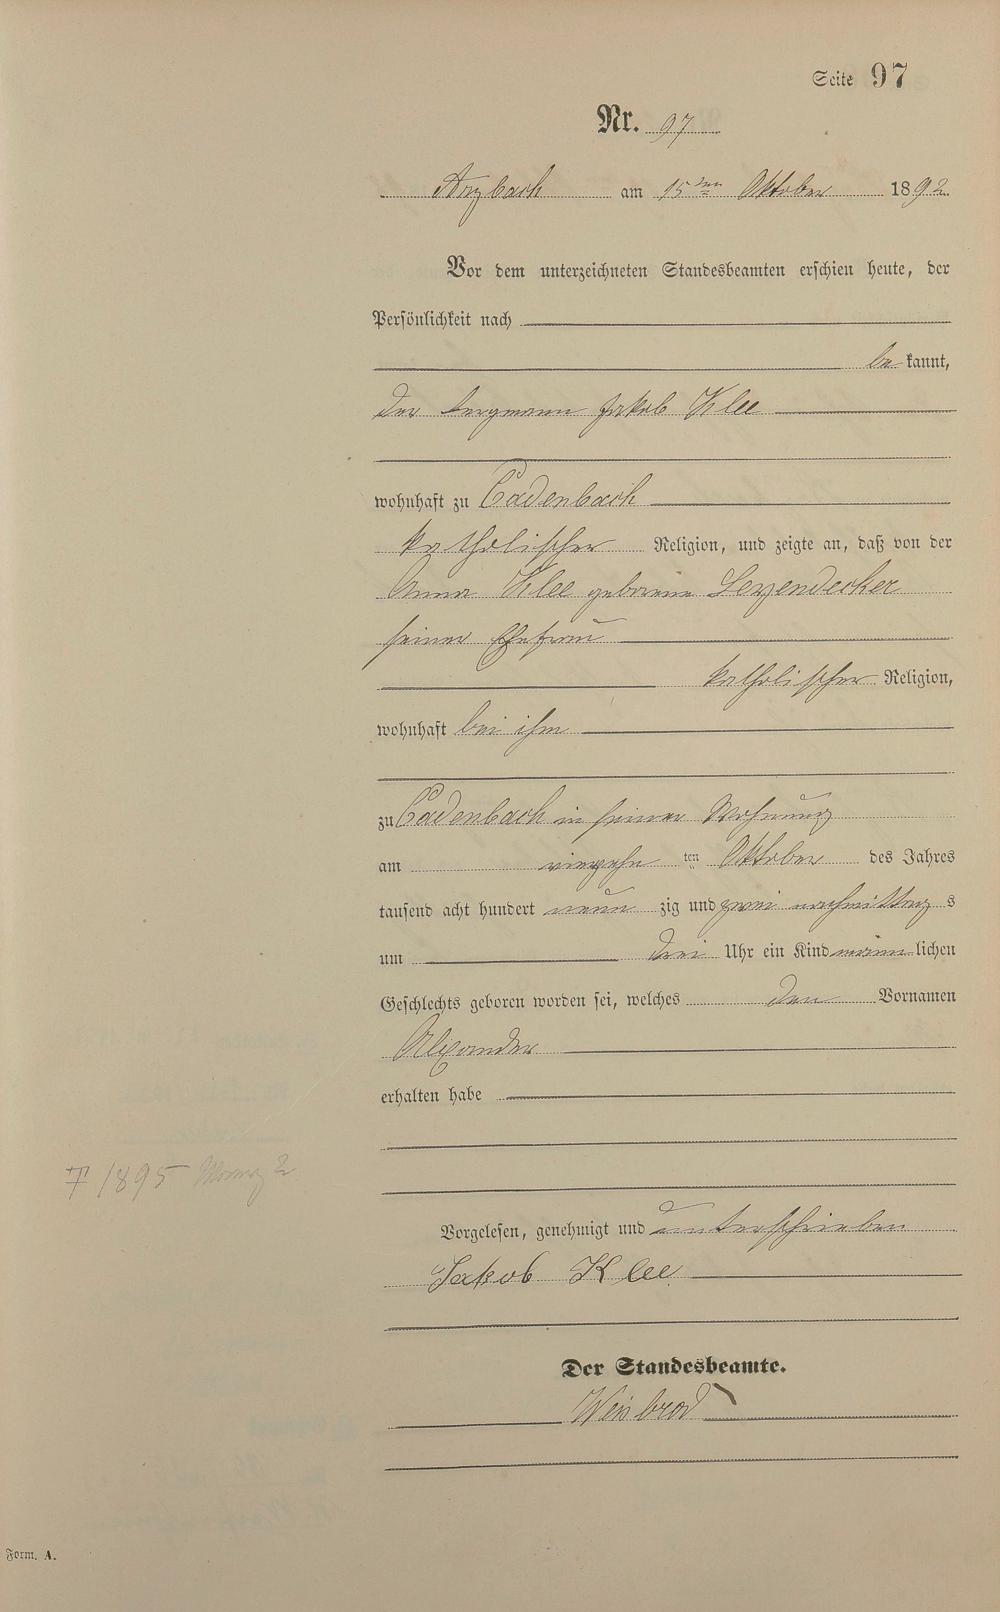 Seite 97
Nr. 97
Arzbach am 15ten Oktober 1892
Vor dem unterzeichneten Standesbeamten erschien heute, der
Persönlichkeit nach
be kannt,
der Bergmann Jakob Klee
wohnhaft zu Cadenbach
katholischer Religion, und zeigte an, daß von der
Anna Klee geborene Leyendecker
seiner Ehefrau
katholischer Religion,
wohnhaft bei ihm
zu Cadenbach in seiner Wohnung
am vierzehn ten Oktober des Jahres
tausend acht hundert neun zig und zwei nachmittag s
um drei Uhr ein Kind männ lichen
Geschlechts geboren worden sei, welches den Vornamen
Alexander
erhalten habe
† 1895
Vorgelesen, genehmigt und unterschrieben
Jakob Klee
Der Standesbeamte.
Weisbrod
Form. A.